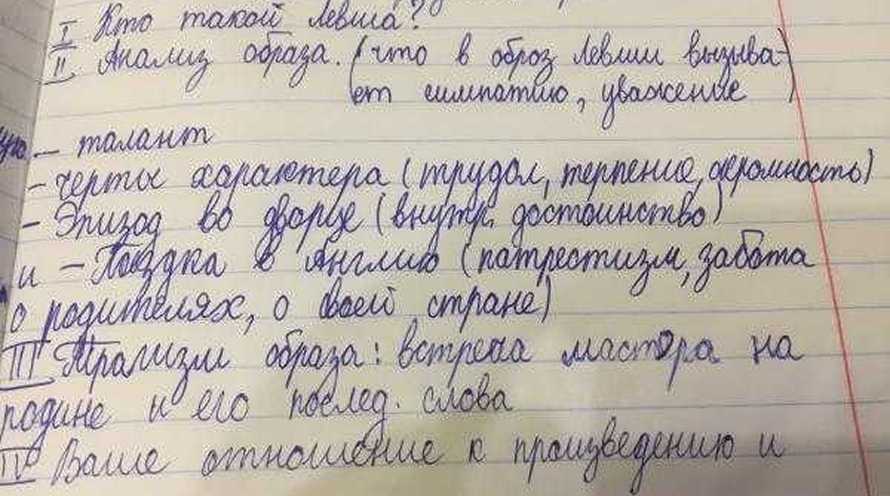 I Кто такой Левша?
II Анализ образа. (что в образ Левши вызыва-
ет симпатию, уважение)
– талант
– черты характера (трудол, терпение, скромность)
– Эпизод во дворце (внутр. достоинство)
и – Поездка в Англию (патрестизм, забота
о родителях, о своей стране)
III образа: встреча мастора на
родине и его послед. слова
IV Ваше отношение к произведению и